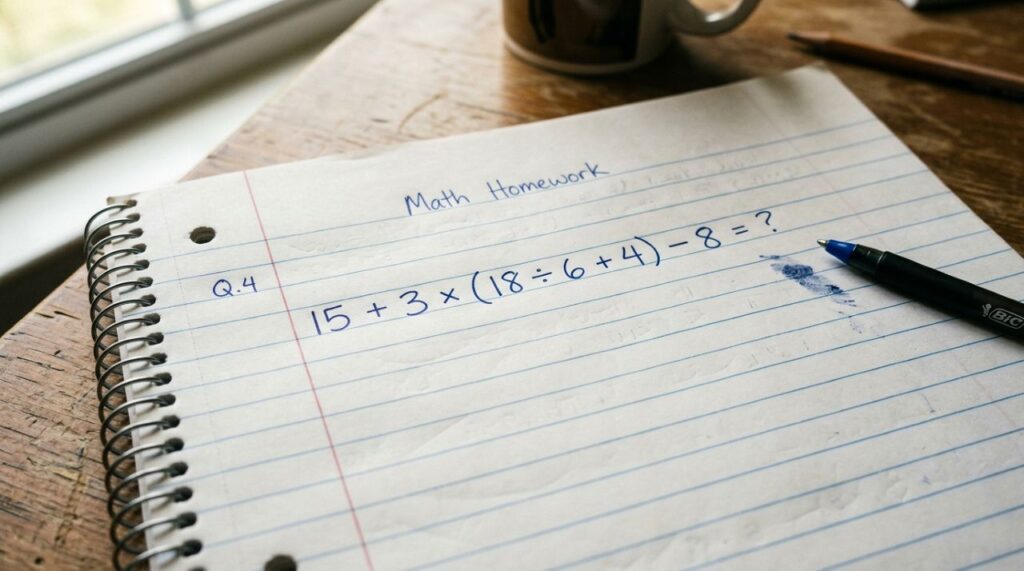 Math Homework
Q.4 15 + 3 × (18 ÷ 6 + 4) − 8 = ?
BIC